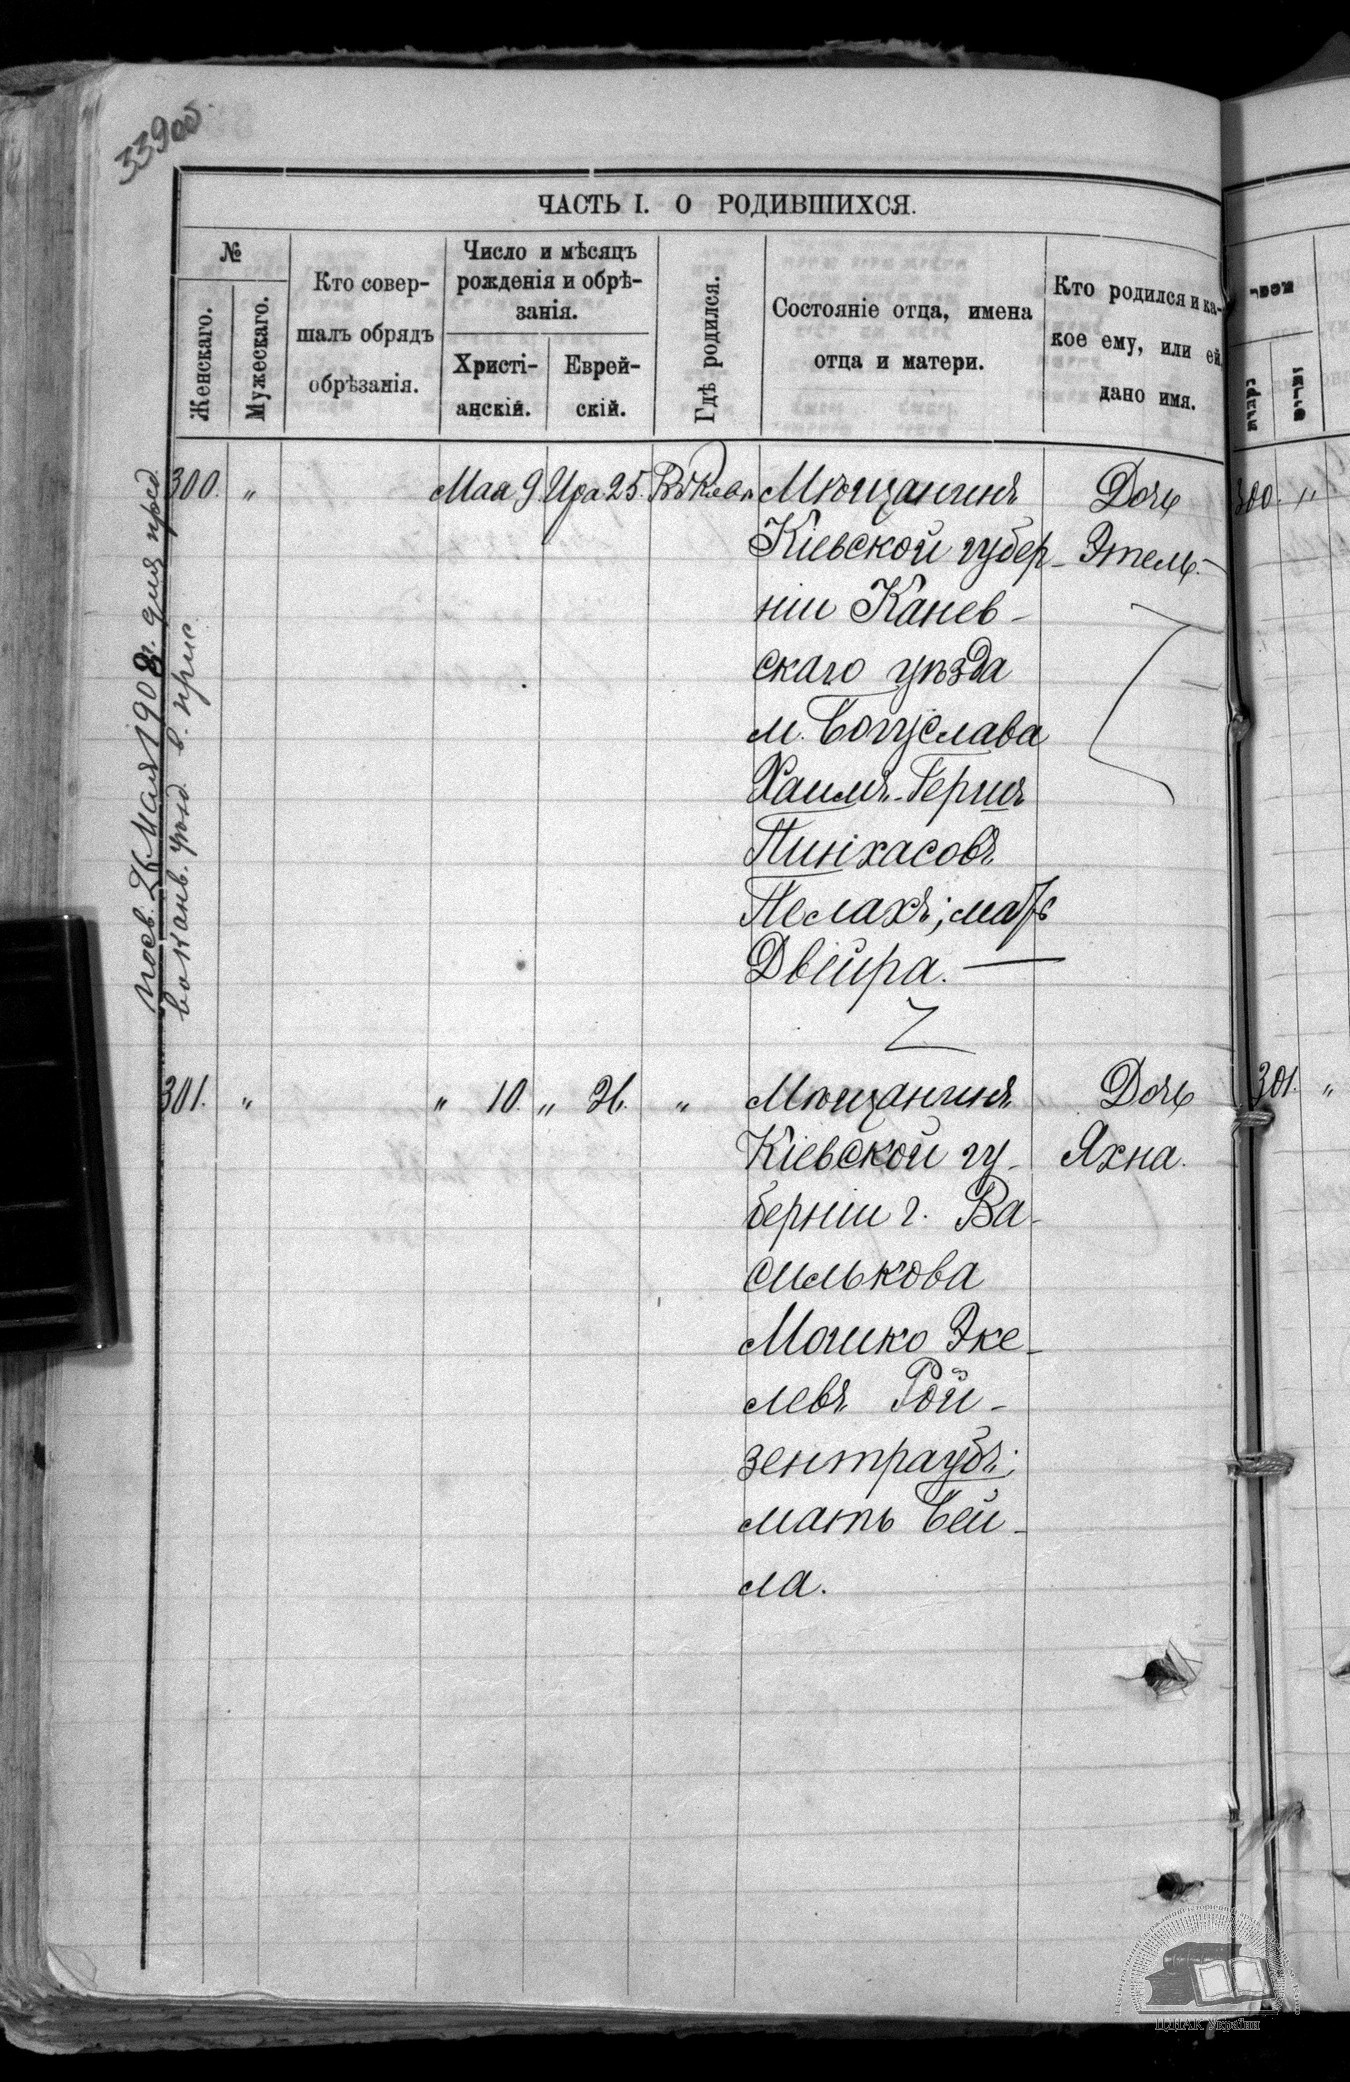 339об.
ЧАСТЬ I. О РОДИВШИХСЯ.
№
Женскаго.
Мужескаго.
Кто совер-
шалъ обрядъ
обрѣзанія.
Число и мѣсяцъ
рожденія и обрѣ-
занія.
Христі-
анскій.
Еврей-
скій.
Гдѣ родился.
Состояніе отца, имена
отца и матери.
Кто родился и ка-
кое ему, или ей,
дано имя.
300. „ Мая 9. Ира 25. Мѣщанинъ
Кіевской губер-
ніи Канев-
скаго уѣзда
м. Богуслава
Хаимъ-Гершъ
Пинхасовъ
Пелахъ; мать
Двейра.
Дочь
Этель.
301. „ „ 10. „ 26. „ Мѣщанинъ
Кіевской гу-
берніи г. Ва-
силькова
Мошко Эке-
левъ Рой-
зентраубъ;
мать Бей-
ла.
Дочь
Яхна.
26 Мая 1908 г. для
300. „
301. „
נקבות
זכרים
מספר
ЦДІАК України